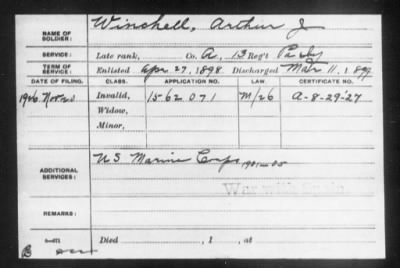 NAME OF SOLDIER: Winchell, Arthur J
SERVICE: Late rank, Co. A, 13 Reg't Pa Inf
TERM OF SERVICE: Enlisted Apr 27, 1898 Discharged Mar 11, 1899
DATE OF FILING. CLASS. APPLICATION NO. LAW CERTIFICATE NO.
Nov 20 Invalid, 1562 071 M/26 A-8-29-27
Widow,
Minor,
ADDITIONAL SERVICES: U S Marine Corps 1901-05
War with Spain.
REMARKS:
Died , 1 , at